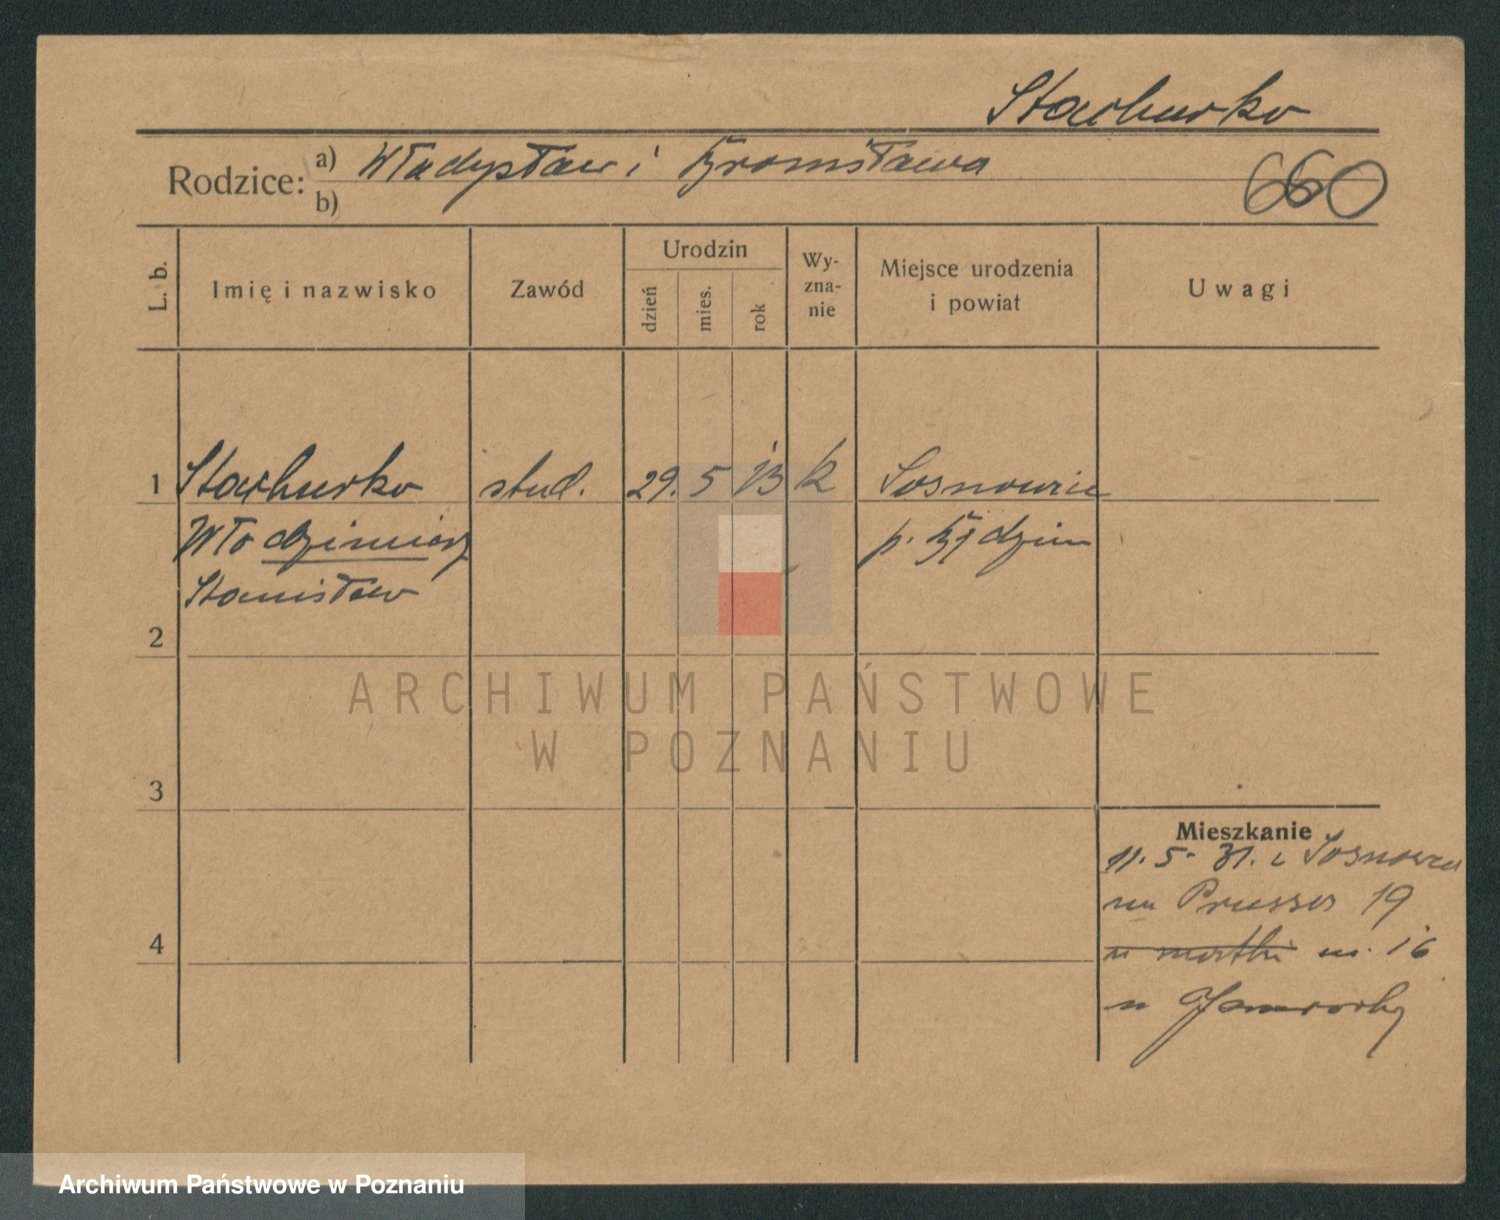 Stachurko
Rodzice: a) Władysław i Bronisława
b)
660
L. b. Imię i nazwisko Zawód Urodzin dzień mies. rok Wy-zna-nie Miejsce urodzenia i powiat Uwagi
1 Stachurko stud. 29. 5 13 k Sosnowic
Włodzimierz p. Będzin
Stanisław
2
ARCHIWUM PAŃSTWOWE
W POZNANIU
3
Mieszkanie
11. 5. 31. z Sosnowca
na Prusa 19
4
u matki m. 16
u
Archiwum Państwowe w Poznaniu